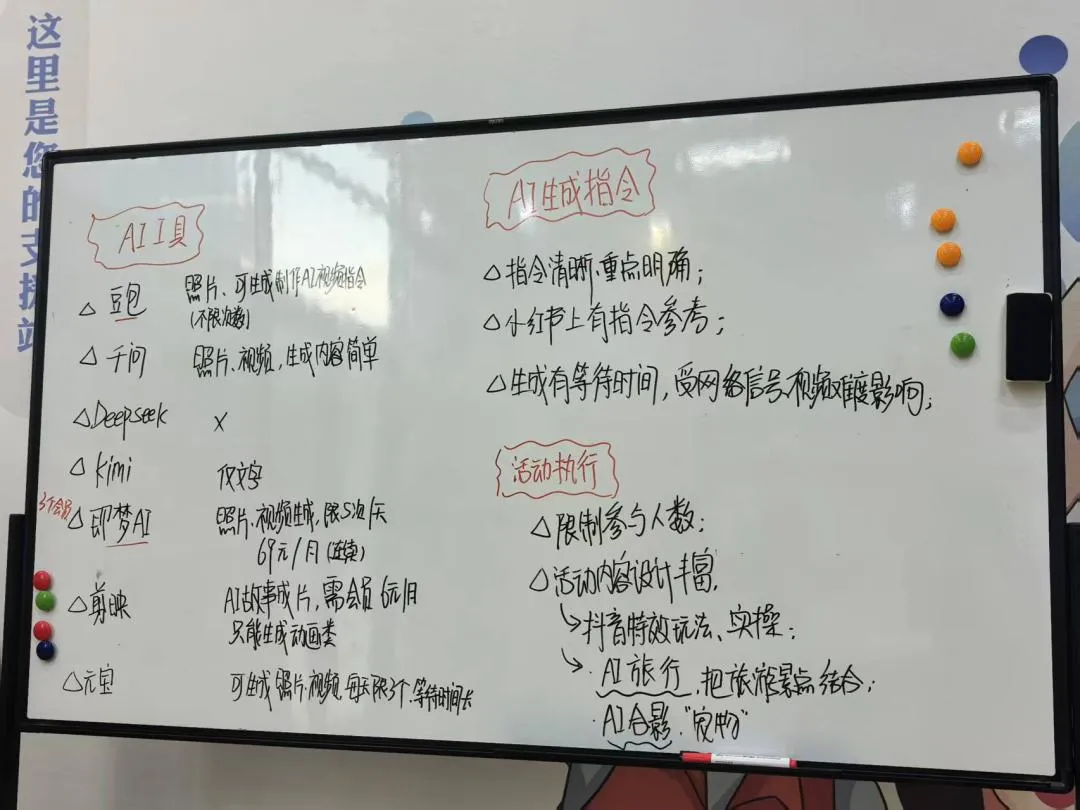 这里是您的支援站
AI工具
△ 豆包 照片、可生成制作AI视频指令
(不限次数)
△ 千问 照片、视频，生成内容简单
△Deepseek ×
△ kimi 仅文字
3个会员
△即梦AI 照片、视频生成，限5次/天
69元/月(连续)
△剪映 AI故事成片，需会员 6元/月
只能生成动画类
△元宝 可生成照片、视频，每天限3个，等待时间长
AI生成指令
△指令清晰、重点明确；
△小红书上有指令参考；
△生成有等待时间，受网络信号、视频难度影响；
活动执行
△限制参与人数；
△活动内容设计丰富，
↳抖音特效玩法、实操；
↳·AI旅行，把旅游景点结合；
·AI合影“宠物”